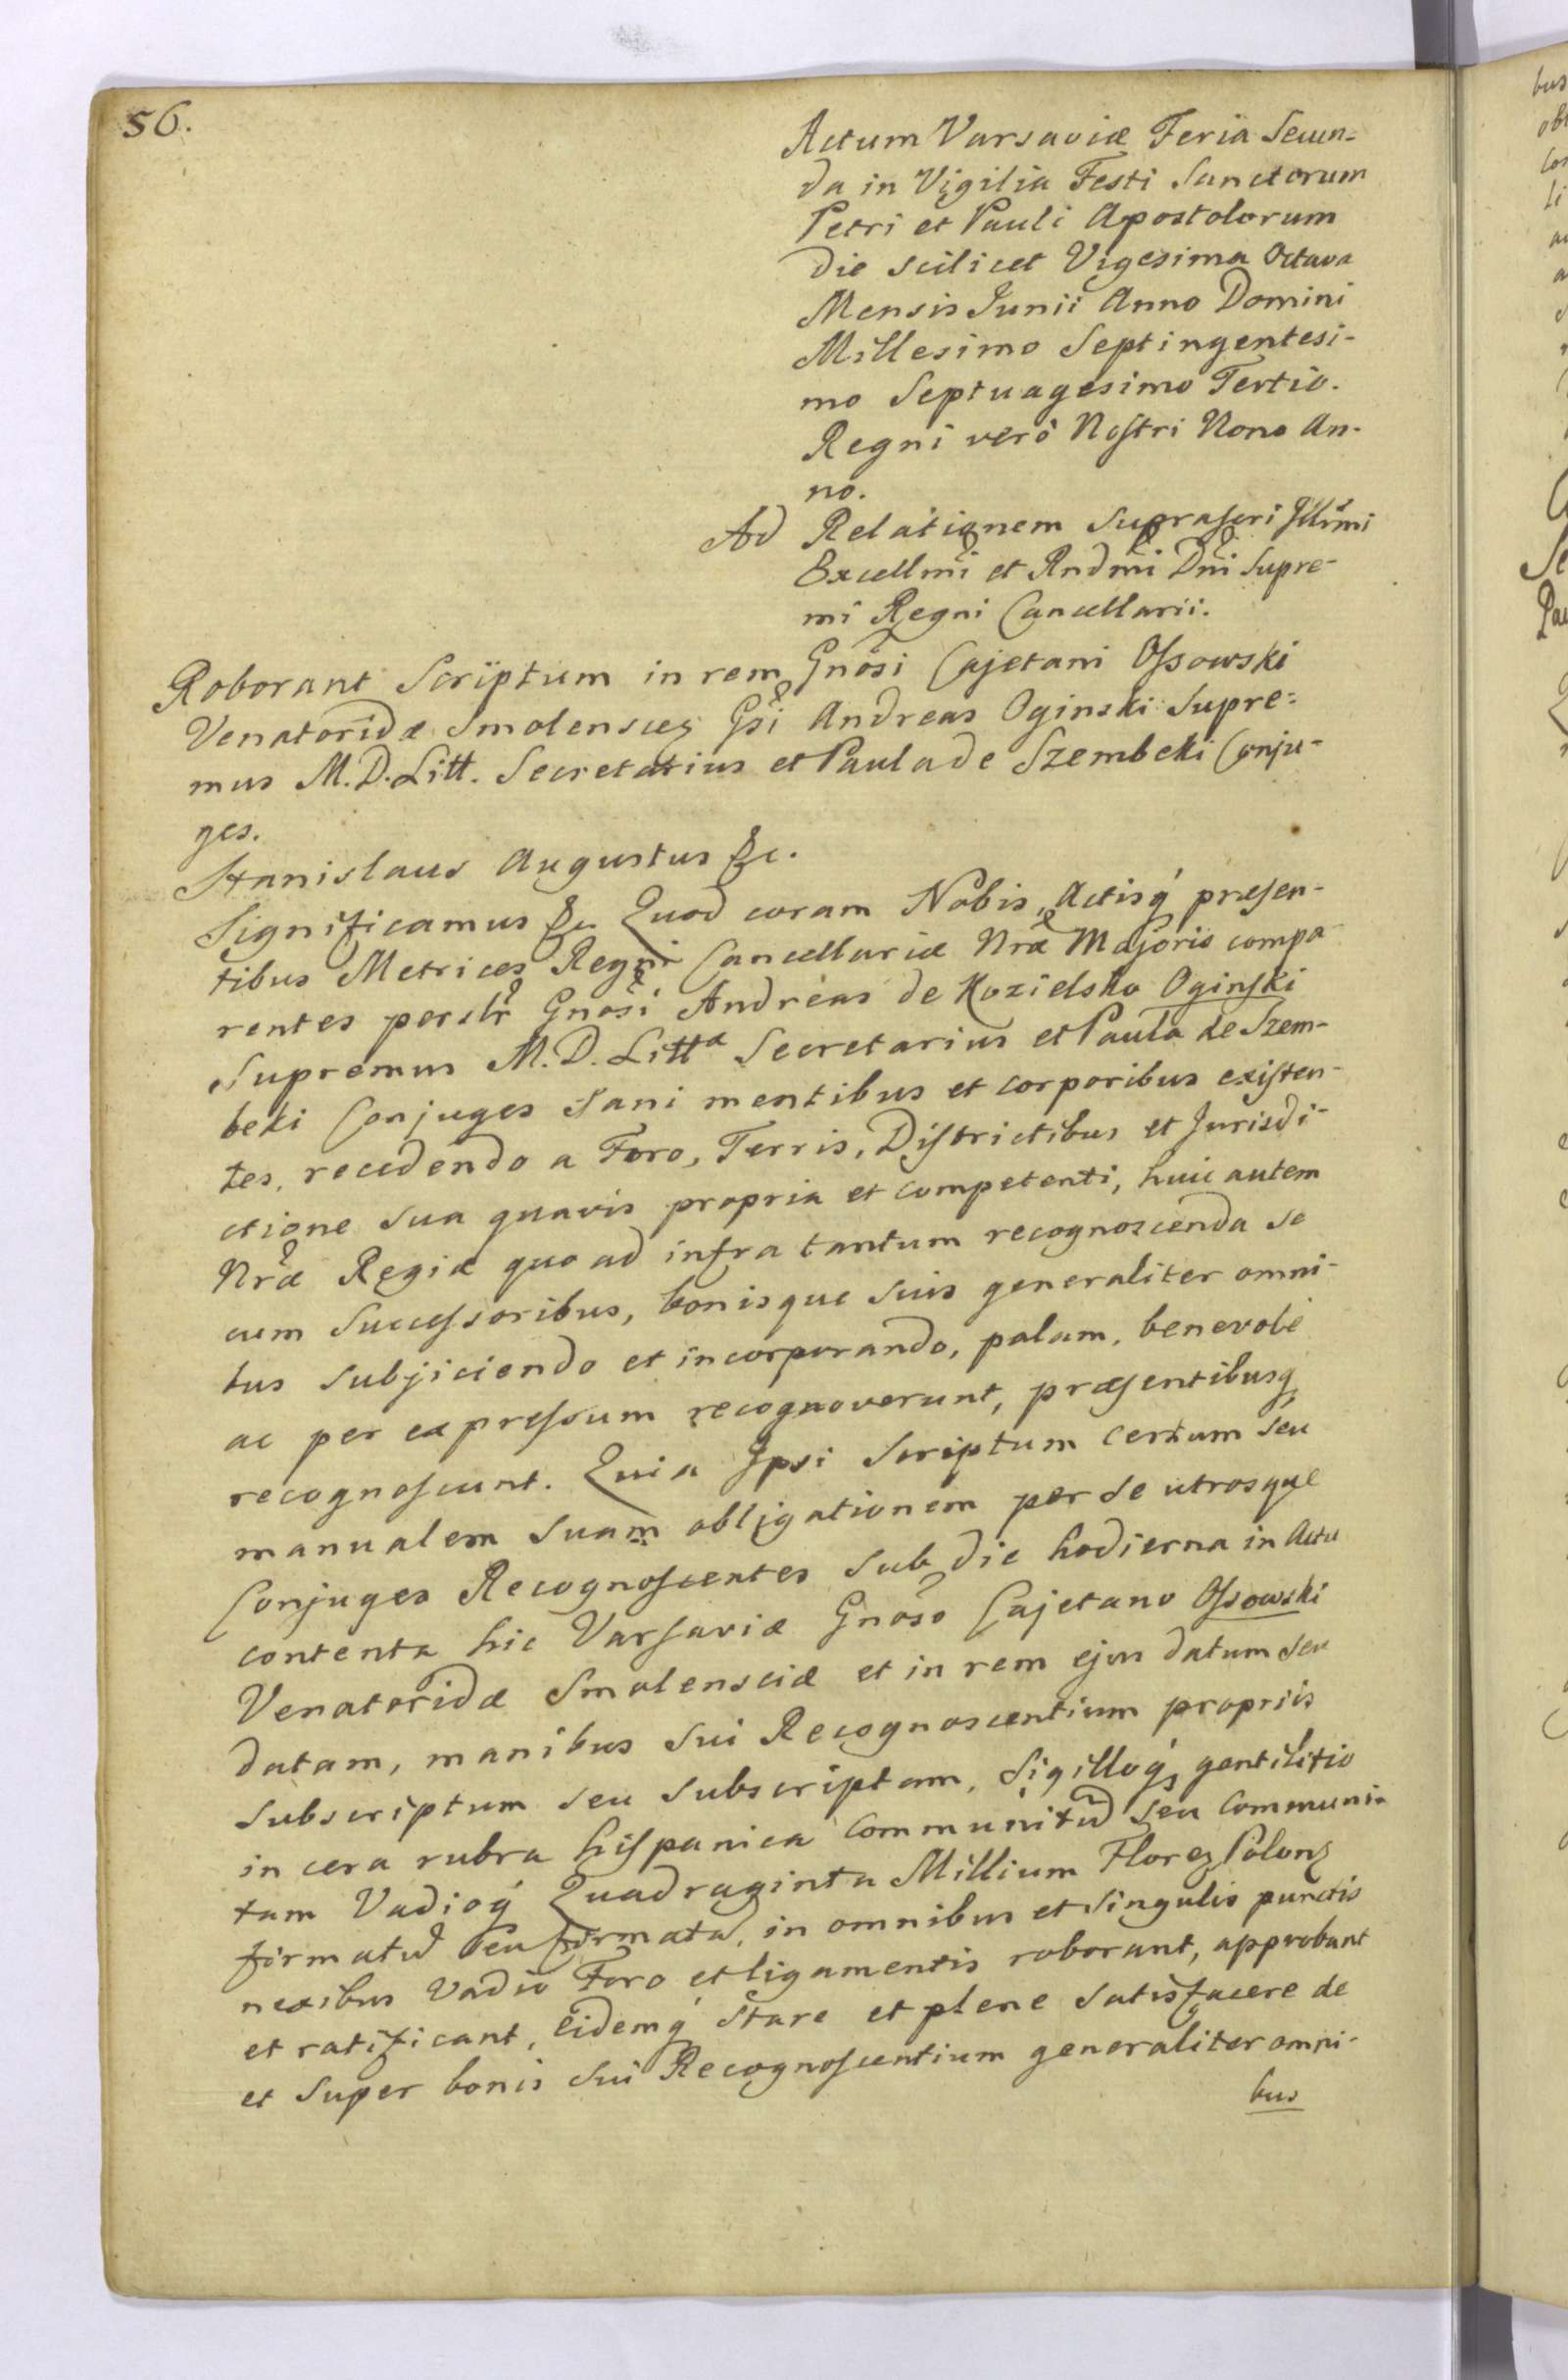 56.
Actum Varsaviæ Feria Secun-
da in Vigilia Festi Sanctorum
Petri et Pauli Apostolorum
die scilicet Vigesima Octava
Mensis Junii Anno Domini
Millesimo Septingentesi-
mo Septuagesimo Tertio.
Regni verò Nostri Nono An-
no.
Ad Relationem Suprascri Illrmi
Excellmi et Rndmi Dni Supre-
mi Regni Cancellarii.
Roborant Scriptum in rem Gnosi Cajetani Ossowski
Venatoridæ Smolensces Gsi Andreas Oginski Supre-
mus M.D.Litt. Secretarius et Paula de Szembeki Conju-
ges.
Stanislaus Augustus &c.
Significamus &c. Quod coram Nobis, Actisq́ præsen-
tibus Metrices Regni Cancellariæ Nræ Majoris compa
rentes perslr Gnosi Andreas de Kozielsko Oginski
Supremus M.D. Litta Secretarius et Paula de Szem-
beki Conjuges Sani mentibus et corporibus existen-
tes, recedendo a Foro, Terris, Districtibus et Jurisdi-
ctione sua quavis propria et competenti, huic autem
Nræ Regiæ quo ad infra tantum recognoscenda se
cum Successoribus, bonisque suis generaliter omni-
bus subjiciendo et incorporando, palam, benevolè
ac per expressum recognoverunt, præsentibusq
recognoscunt. Quia Ipsi Scriptum certum seu
manualem suam obligationem per se utrosque
Conjuges Recognoscentes sub die hodierna in Actu
contenta hic Varsaviæ Gnoso Cajetano Ossowski
Venatoridæ Smolensciæ et in rem ejus datum seu
datam, manibus sui Recognoscentium propriis
subscriptum seu subscriptam, Sigilloq́ gentilitio
in cera rubra hispanica communitũ seu communi-
tam Vadioq́ Quadraginta Millium Flore Polon
firmatũ seu firmatã, in omnibus et singulis punctis
nexibus Vadio Foro et ligamentis roborant, approbant
et ratificant, Eidemq́ Stare et plene satisfacere de
et super bonis sui Recognoscentium generaliter omni-
bus